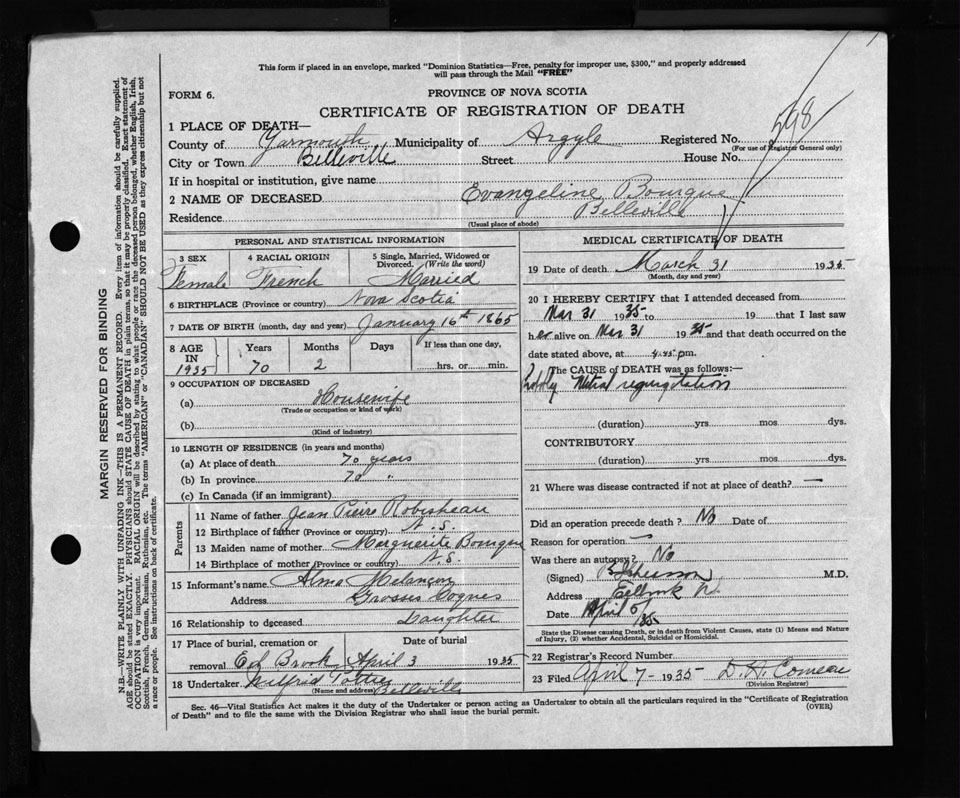 This form if placed in an envelope, marked "Dominion Statistics—Free, penalty for improper use, $300," and properly addressed
will pass through the Mail "FREE"
FORM 6.
PROVINCE OF NOVA SCOTIA
CERTIFICATE OF REGISTRATION OF DEATH
598
1 PLACE OF DEATH—
County of Yarmouth Municipality of Argyle Registered No.
(For use of Registrar General only)
City or Town Belleville Street House No.
If in hospital or institution, give name
2 NAME OF DECEASED Evangeline Bourque
Residence Belleville
(Usual place of abode)
PERSONAL AND STATISTICAL INFORMATION
3 SEX 4 RACIAL ORIGIN 5 Single, Married, Widowed or Divorced. (Write the word)
Female French Married
6 BIRTHPLACE (Province or country) Nova Scotia
7 DATE OF BIRTH (month, day and year) January 16th 1865
8 AGE IN 1935 Years Months Days If less than one day,
70 2 hrs. or min.
9 OCCUPATION OF DECEASED
(a) Housewife
(Trade or occupation or kind of work)
(b)
(Kind of industry)
10 LENGTH OF RESIDENCE (in years and months)
(a) At place of death 70 years
(b) In province 70 "
(c) In Canada (if an immigrant)
Parents
11 Name of father Jean Pierre Robisheau
12 Birthplace of father (Province or country) N. S.
13 Maiden name of mother Marguerite Bourque
14 Birthplace of mother (Province or country) N. S.
15 Informant's name Alma Melancon
Address Grosses Coques
16 Relationship to deceased Daughter
17 Place of burial, cremation or Date of burial
removal Eel Brook April 3 1935
18 Undertaker Wilfrid Pottier
(Name and address) Belleville
MEDICAL CERTIFICATE OF DEATH
19 Date of death March 31 1935
(Month, day and year)
20 I HEREBY CERTIFY that I attended deceased from
Mar 31 1935 to 19 that I last saw
her alive on Mar 31 1935 and that death occurred on the
date stated above, at 4.45 pm.
The CAUSE OF DEATH was as follows:—
Mitral regurgitation
(duration) yrs. mos. dys.
CONTRIBUTORY
(duration) yrs. mos. dys.
21 Where was disease contracted if not at place of death? —
Did an operation precede death? No Date of
Reason for operation —
Was there an autopsy? No
(Signed) M.D.
Address Eelbrook
Date April 5/35
State the Disease causing Death, or in death from Violent Causes, state (1) Means and Nature
of Injury, (2) whether Accidental, Suicidal or Homicidal.
22 Registrar's Record Number
23 Filed April 7 - 1935 D. H. Comeau
(Division Registrar)
Sec. 46—Vital Statistics Act makes it the duty of the Undertaker or person acting as Undertaker to obtain all the particulars required in the "Certificate of Registration
of Death" and to file the same with the Division Registrar who shall issue the burial permit.
(OVER)
MARGIN RESERVED FOR BINDING
N.B.—WRITE PLAINLY WITH UNFADING INK—THIS IS A PERMANENT RECORD. Every item of information should be carefully supplied.
AGE should be stated EXACTLY. PHYSICIANS should STATE CAUSE OF DEATH in plain terms, so that it may be properly classified. Exact statement of
OCCUPATION is very important. RACIAL ORIGIN will be described by stating to what people or race the deceased person belonged, whether English, Irish,
Scottish, French, German, Russian, Ruthenian, etc. The terms "AMERICAN" or "CANADIAN" SHOULD NOT BE USED as they express citizenship but not
a race or people. See instructions on back of certificate.